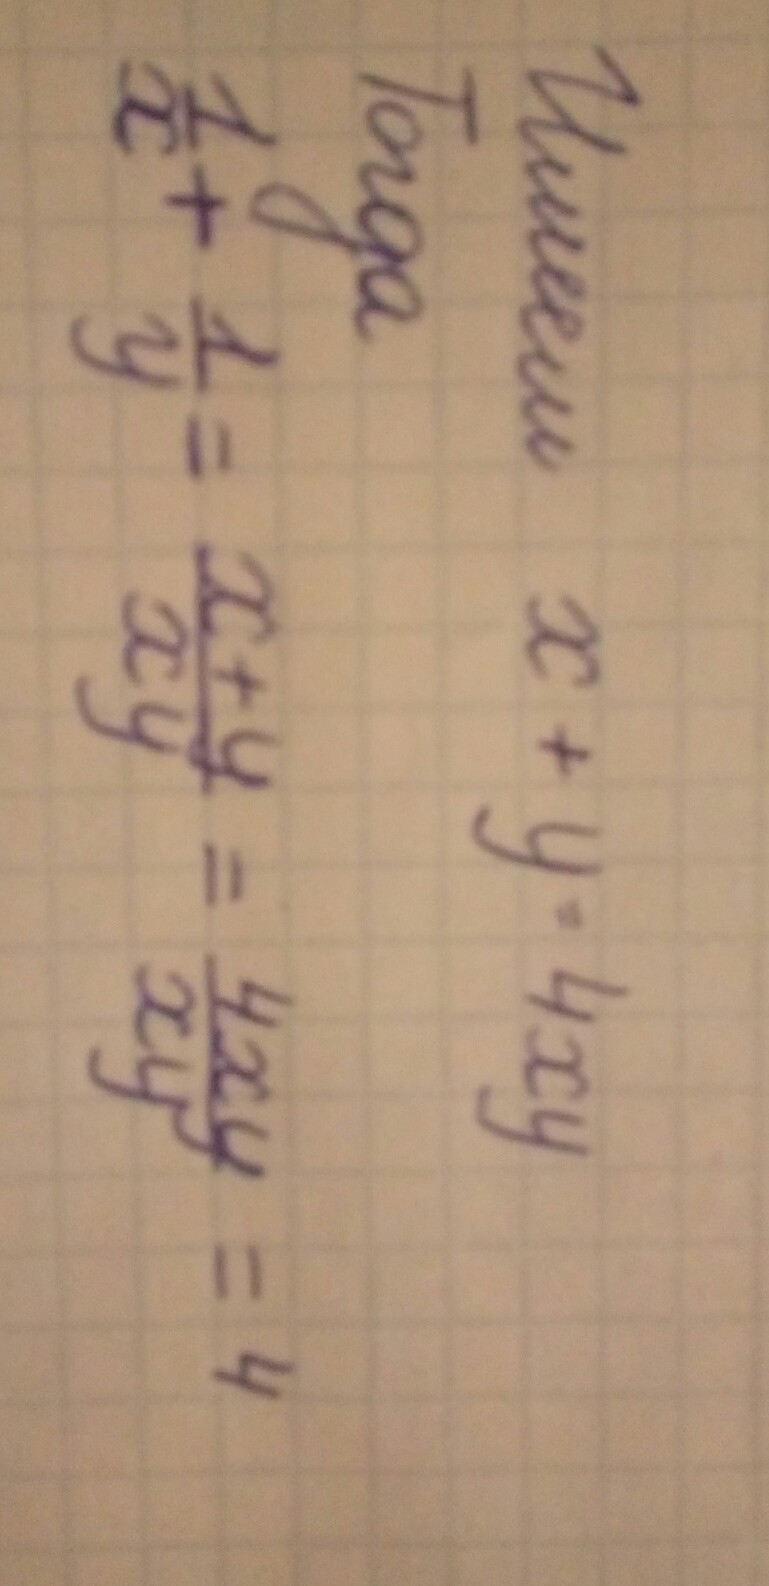 Имеем x + y = 4xy
Тогда
1/x + 1/y = x+y/xy = 4xy/xy = 4